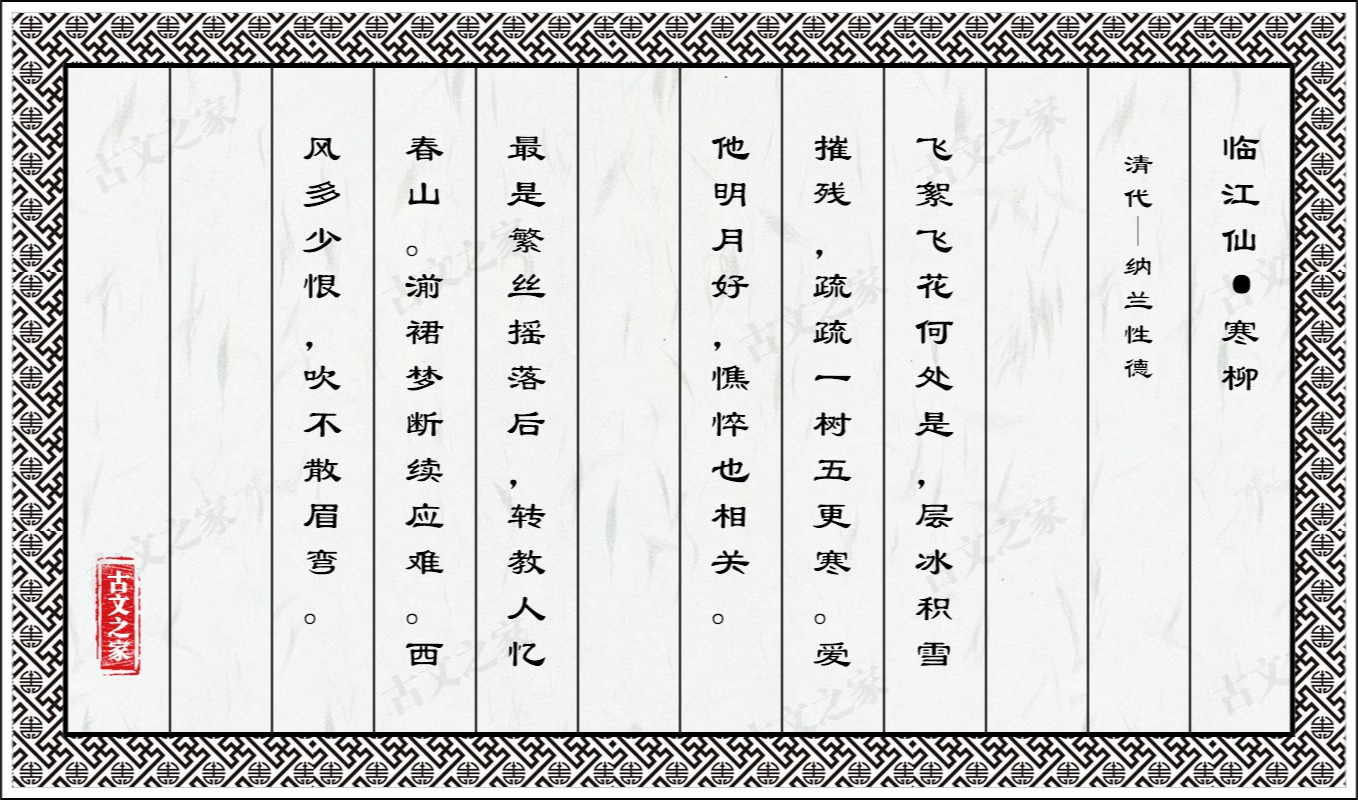 临江仙●寒柳
清代—纳兰性德
飞絮飞花何处是，层冰积雪
摧残，疏疏一树五更寒。爱
他明月好，憔悴也相关。
最是繁丝摇落后，转教人忆
春山。湔裙梦断续应难。西
风多少恨，吹不散眉弯。
古文之家